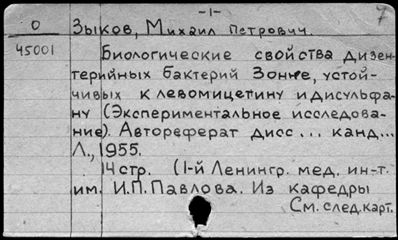 -1-
7
0 Зыков, Михаил Петрович.
45001 Биологические свойства дизен-
терийных бактерий Зонне, устой-
чивых к левомицетину и дисульфа-
ну (Экспериментальное исследова-
ние). Автореферат дисс... канд...
Л., 1955.
14 стр. (1-й Ленингр. мед. ин-т.
им. И.П. Павлова. Из кафедры
См. след. карт.